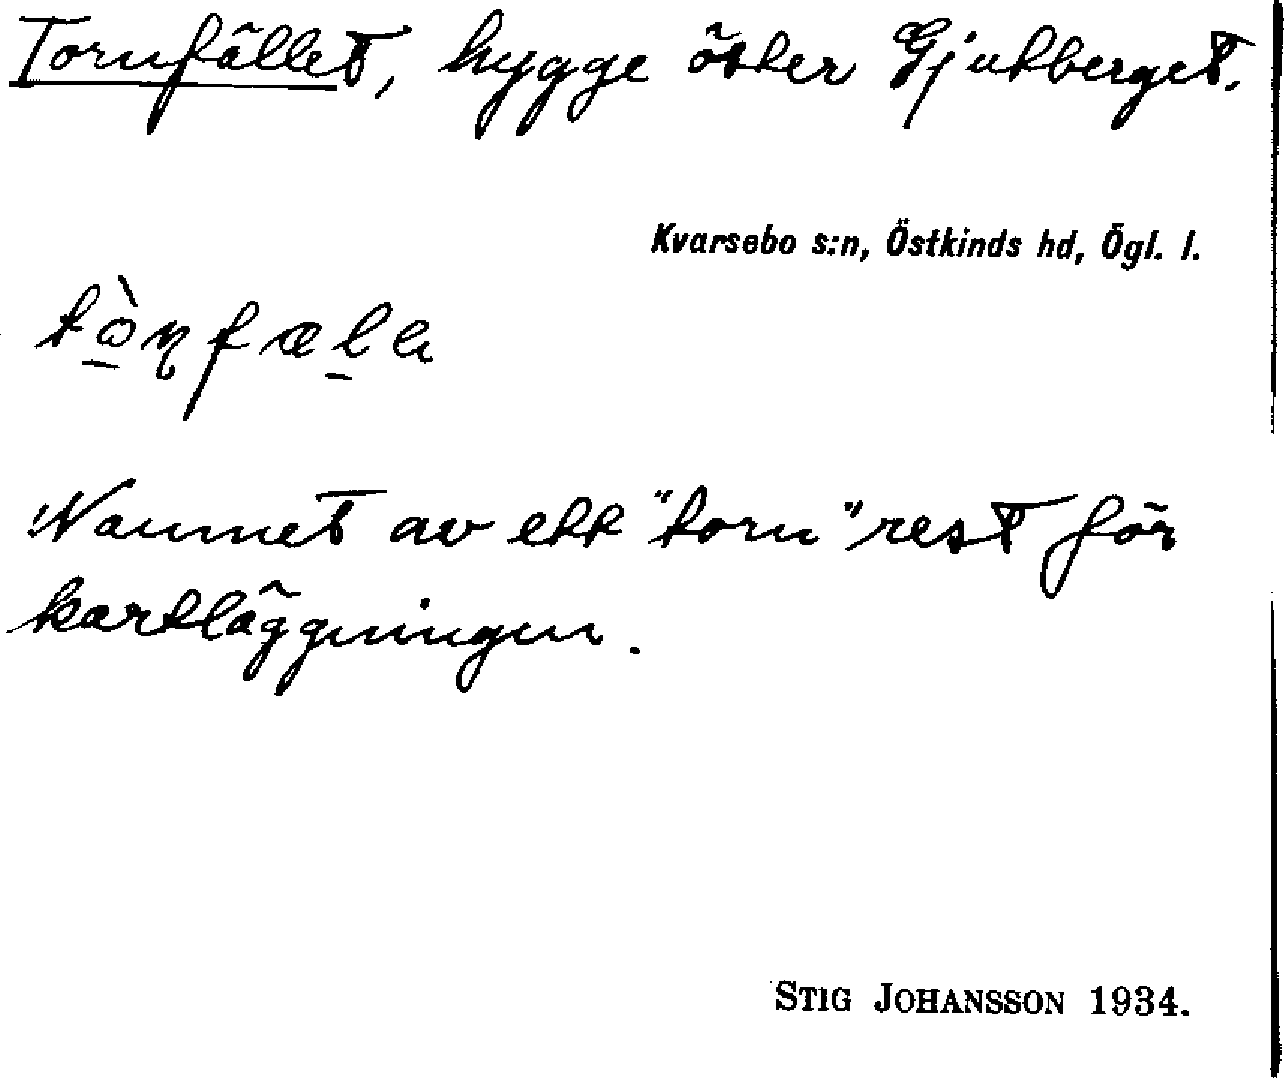 Tornfället, hygge öster Gjutberget.
Kvarsebo s:n, Östkinds hd, Ögl. l.
Namnet av ett "torn" rest för
kartläggningen.
STIG JOHANSSON 1934.